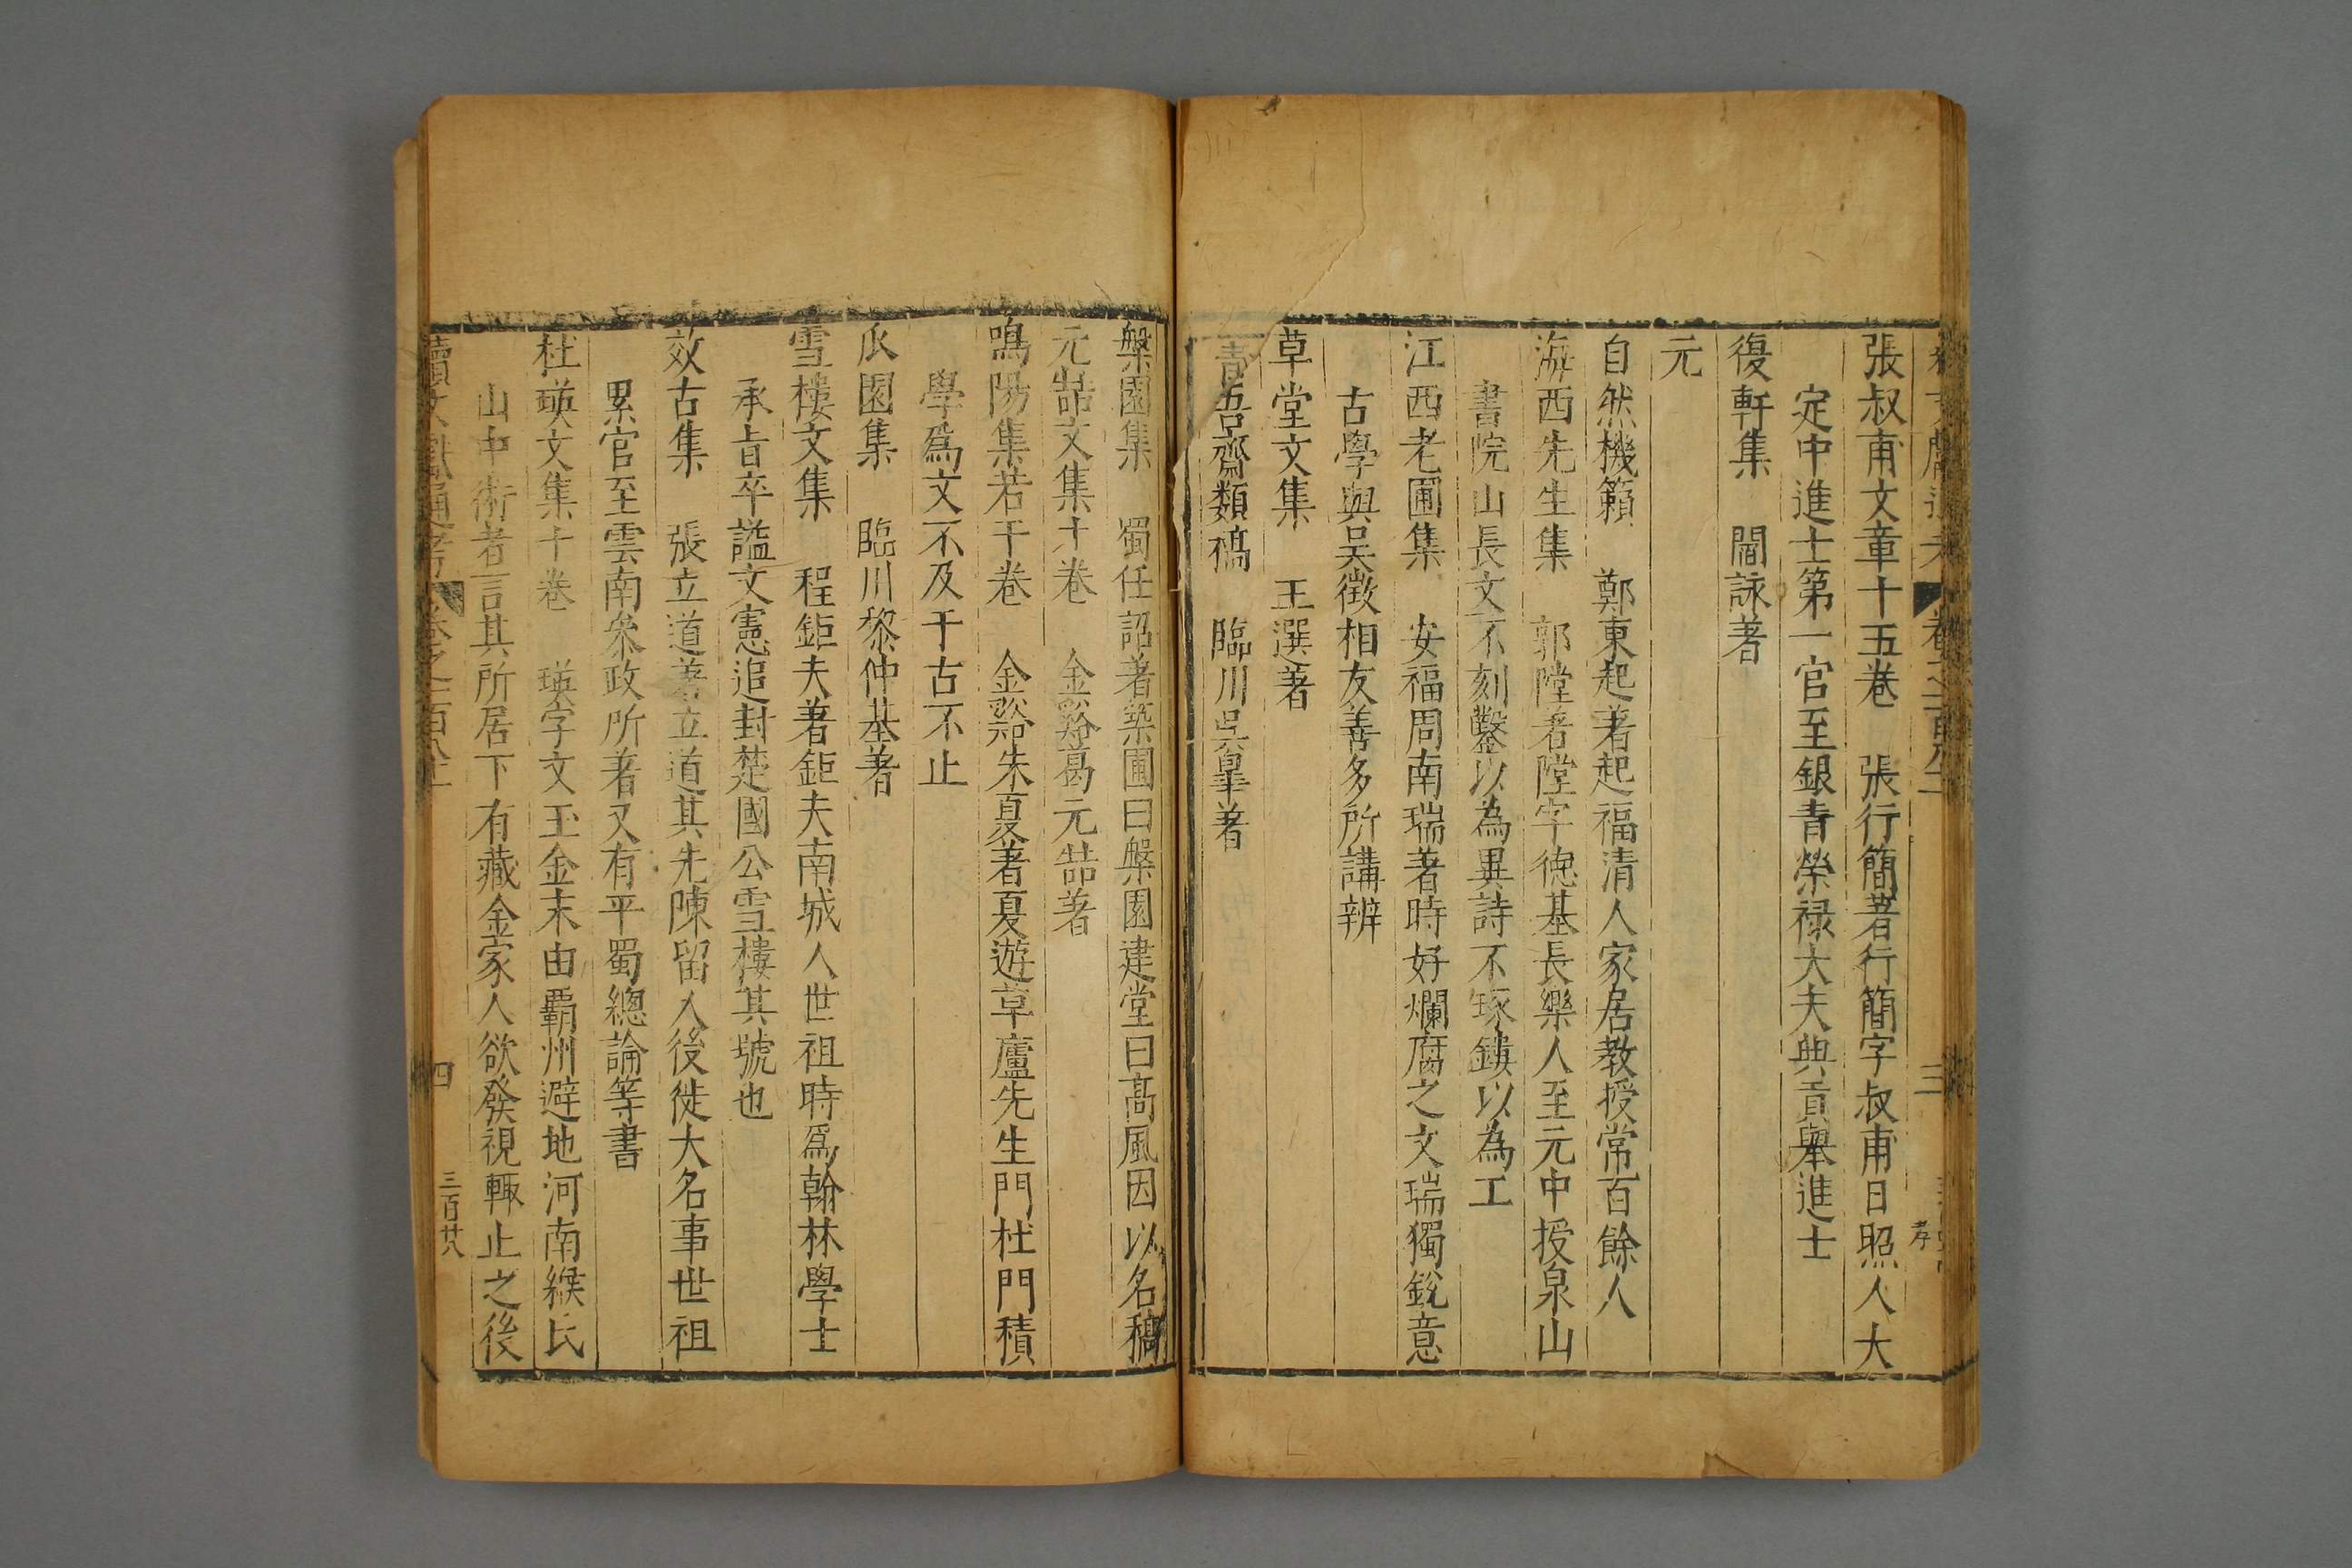 張叔甫文章十五卷　張行簡著行簡字叔甫日照人大
定中進士第一官至銀青榮禄大夫典貢舉進士
復軒集　閻詠著
元
自然機籟　鄭東起著起福清人家居教授常百餘人
海西先生集　郭隚著隚字德基長樂人至元中授泉山
書院山長文不刻鑿以為異詩不琢鏤以為工
江西老圃集　安福周南瑞著時好爛腐之文瑞獨銳意
古學與吴徵相友善多所講辨
草堂文集　王選著
青吾齋類稿　臨川吳臯著
槃園集　蜀任詔著築圃曰槃園建堂曰髙風因以名稿
元喆文集十卷　金谿葛元喆著
鳴陽集若干卷　金谿朱夏著夏遊草廬先生門杜門積
學爲文不及于古不止
瓜園集　臨川黎仲基著
雪樓文集　程鉅夫著鉅夫南城人世祖時爲翰林學士
承旨卒謚文憲追封楚國公雪樓其號也
效古集　張立道著立道其先陳留人後徙大名事世祖
累官至雲南叅政所著又有平蜀總論等書
杜瑛文集十卷　瑛字文玉金末由覇州避地河南緱氏
山中術者言其所居下有藏金家人欲發視輙止之後
續文獻通考　卷之一百八十
四
三百廿八
三
孝